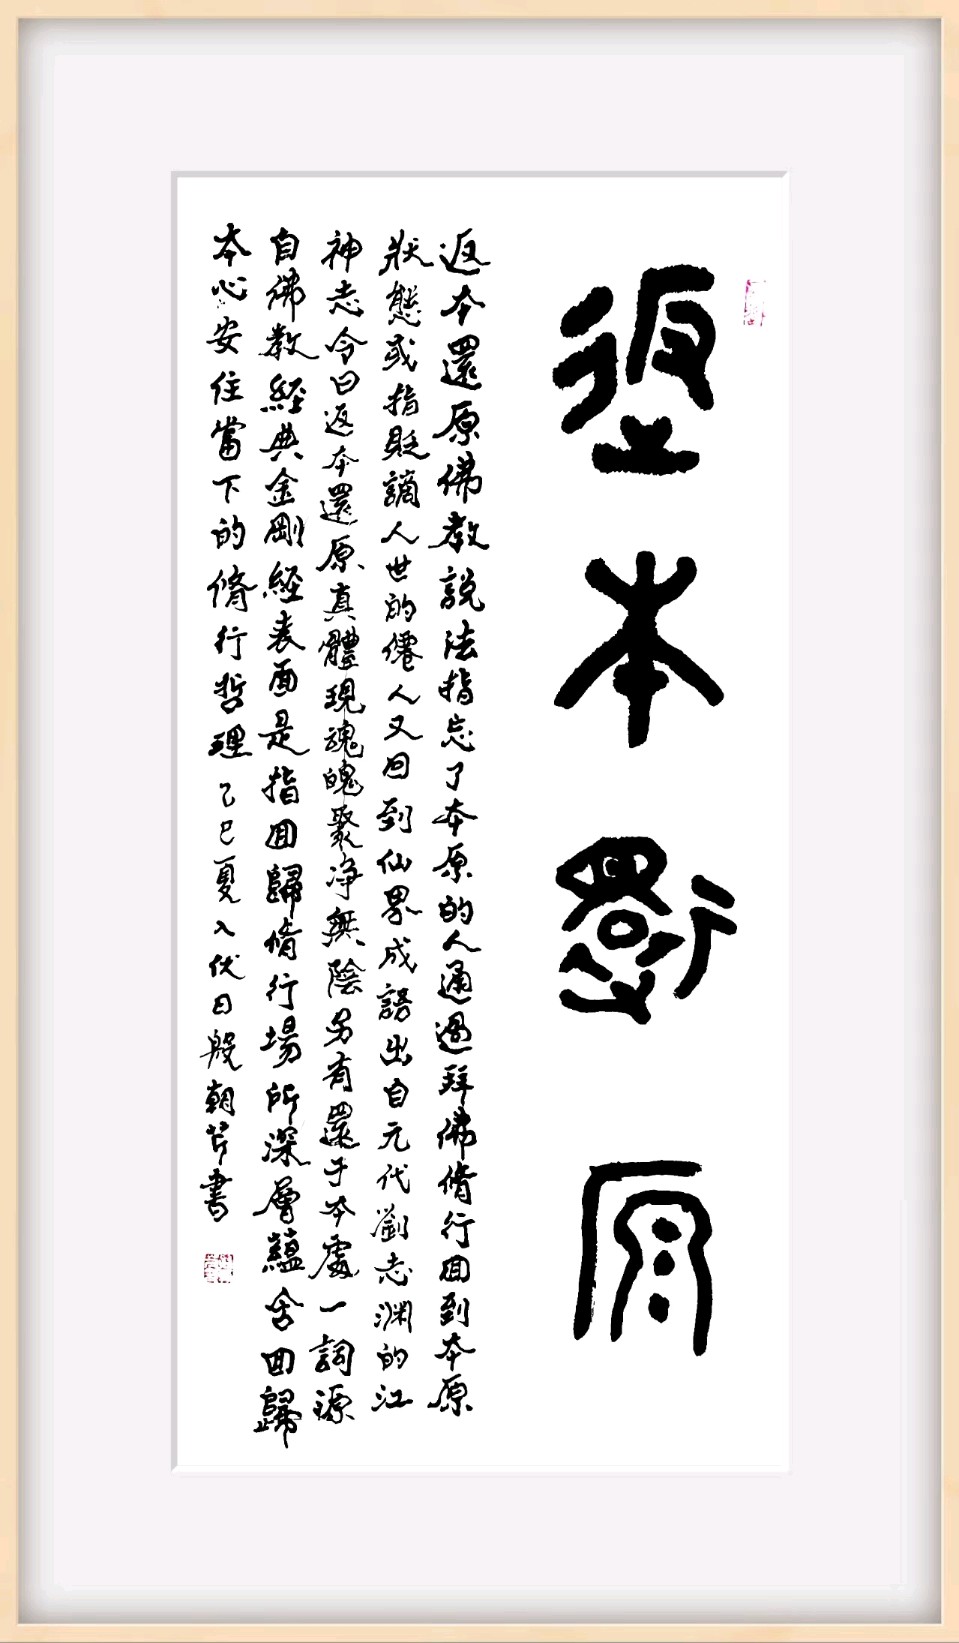 返本還原
返本還原佛教説法指忘了本原的人通過拜佛脩行回到本原
狀態或指貶謫人世的僊人又回到仙界成語出自元代劉志渊的江
神志令曰返本還原真體現魂魄聚净無陰另有還于本處一詞源
自佛教經典金剛經表面是指回歸脩行場所深層蘊含回歸
本心安住當下的脩行哲理乙巳夏入伏日殷朝芹書